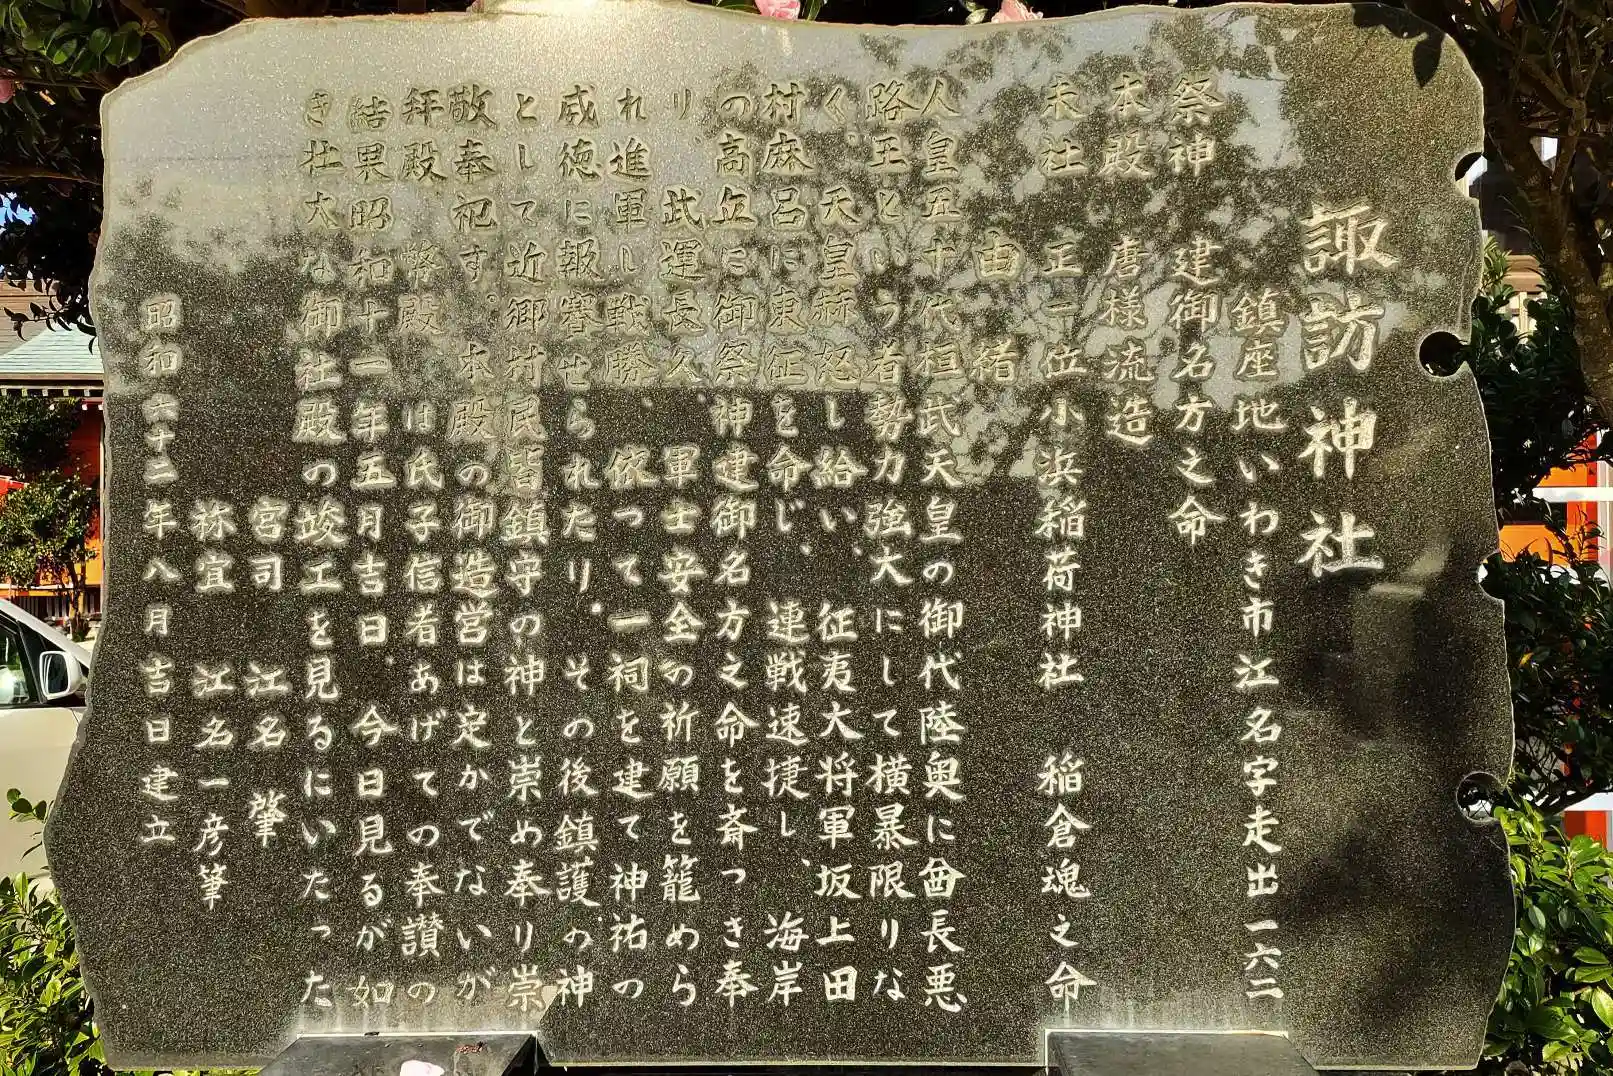 諏訪神社
鎮座地いわき市江名字走出一六二
祭神 建御名方之命
本殿 唐様流造
末社 正一位小浜稲荷神社 稲倉魂之命
由緒
人皇五十代桓武天皇の御代陸奥に酋長悪
路王という者勢力強大にして横暴限りな
く、天皇赫怒し給い、征夷大将軍坂上田
村麻呂に東征を命じ、連戦速捷し、海岸
の高丘に御祭神建御名方之命を斎つき奉
り、武運長久、軍士安全の祈願を籠めら
れ進軍し戦勝、依つて一祠を建て神祐つ
威徳に報賽せられたり。その後鎮護の神
として近郷村民皆鎮守の神と崇め奉り崇
敬奉祀す。本殿の御造営は定かでないが
拝殿、幣殿、は氏子信者あげての奉讃の
結果昭和十一年五月吉日、今日見るが如
き壮大な御社殿の竣工を見るにいたった
宮司 江名 肇
祢宜 江名一彦筆
昭和六十二年八月吉日建立